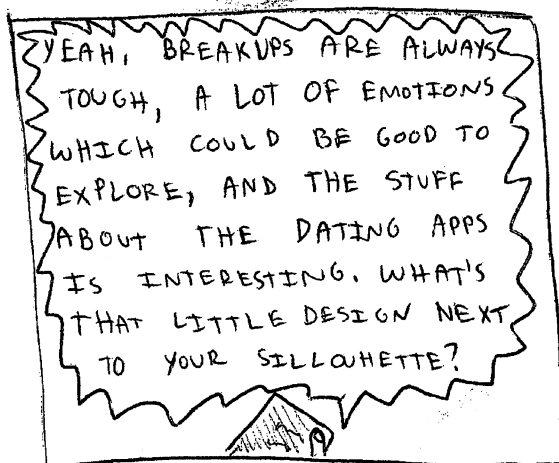 YEAH, BREAKUPS ARE ALWAYS
TOUGH, A LOT OF EMOTIONS
WHICH COULD BE GOOD TO
EXPLORE, AND THE STUFF
ABOUT THE DATING APPS
IS INTERESTING. WHAT'S
THAT LITTLE DESIGN NEXT
TO YOUR SILLOUHETTE?